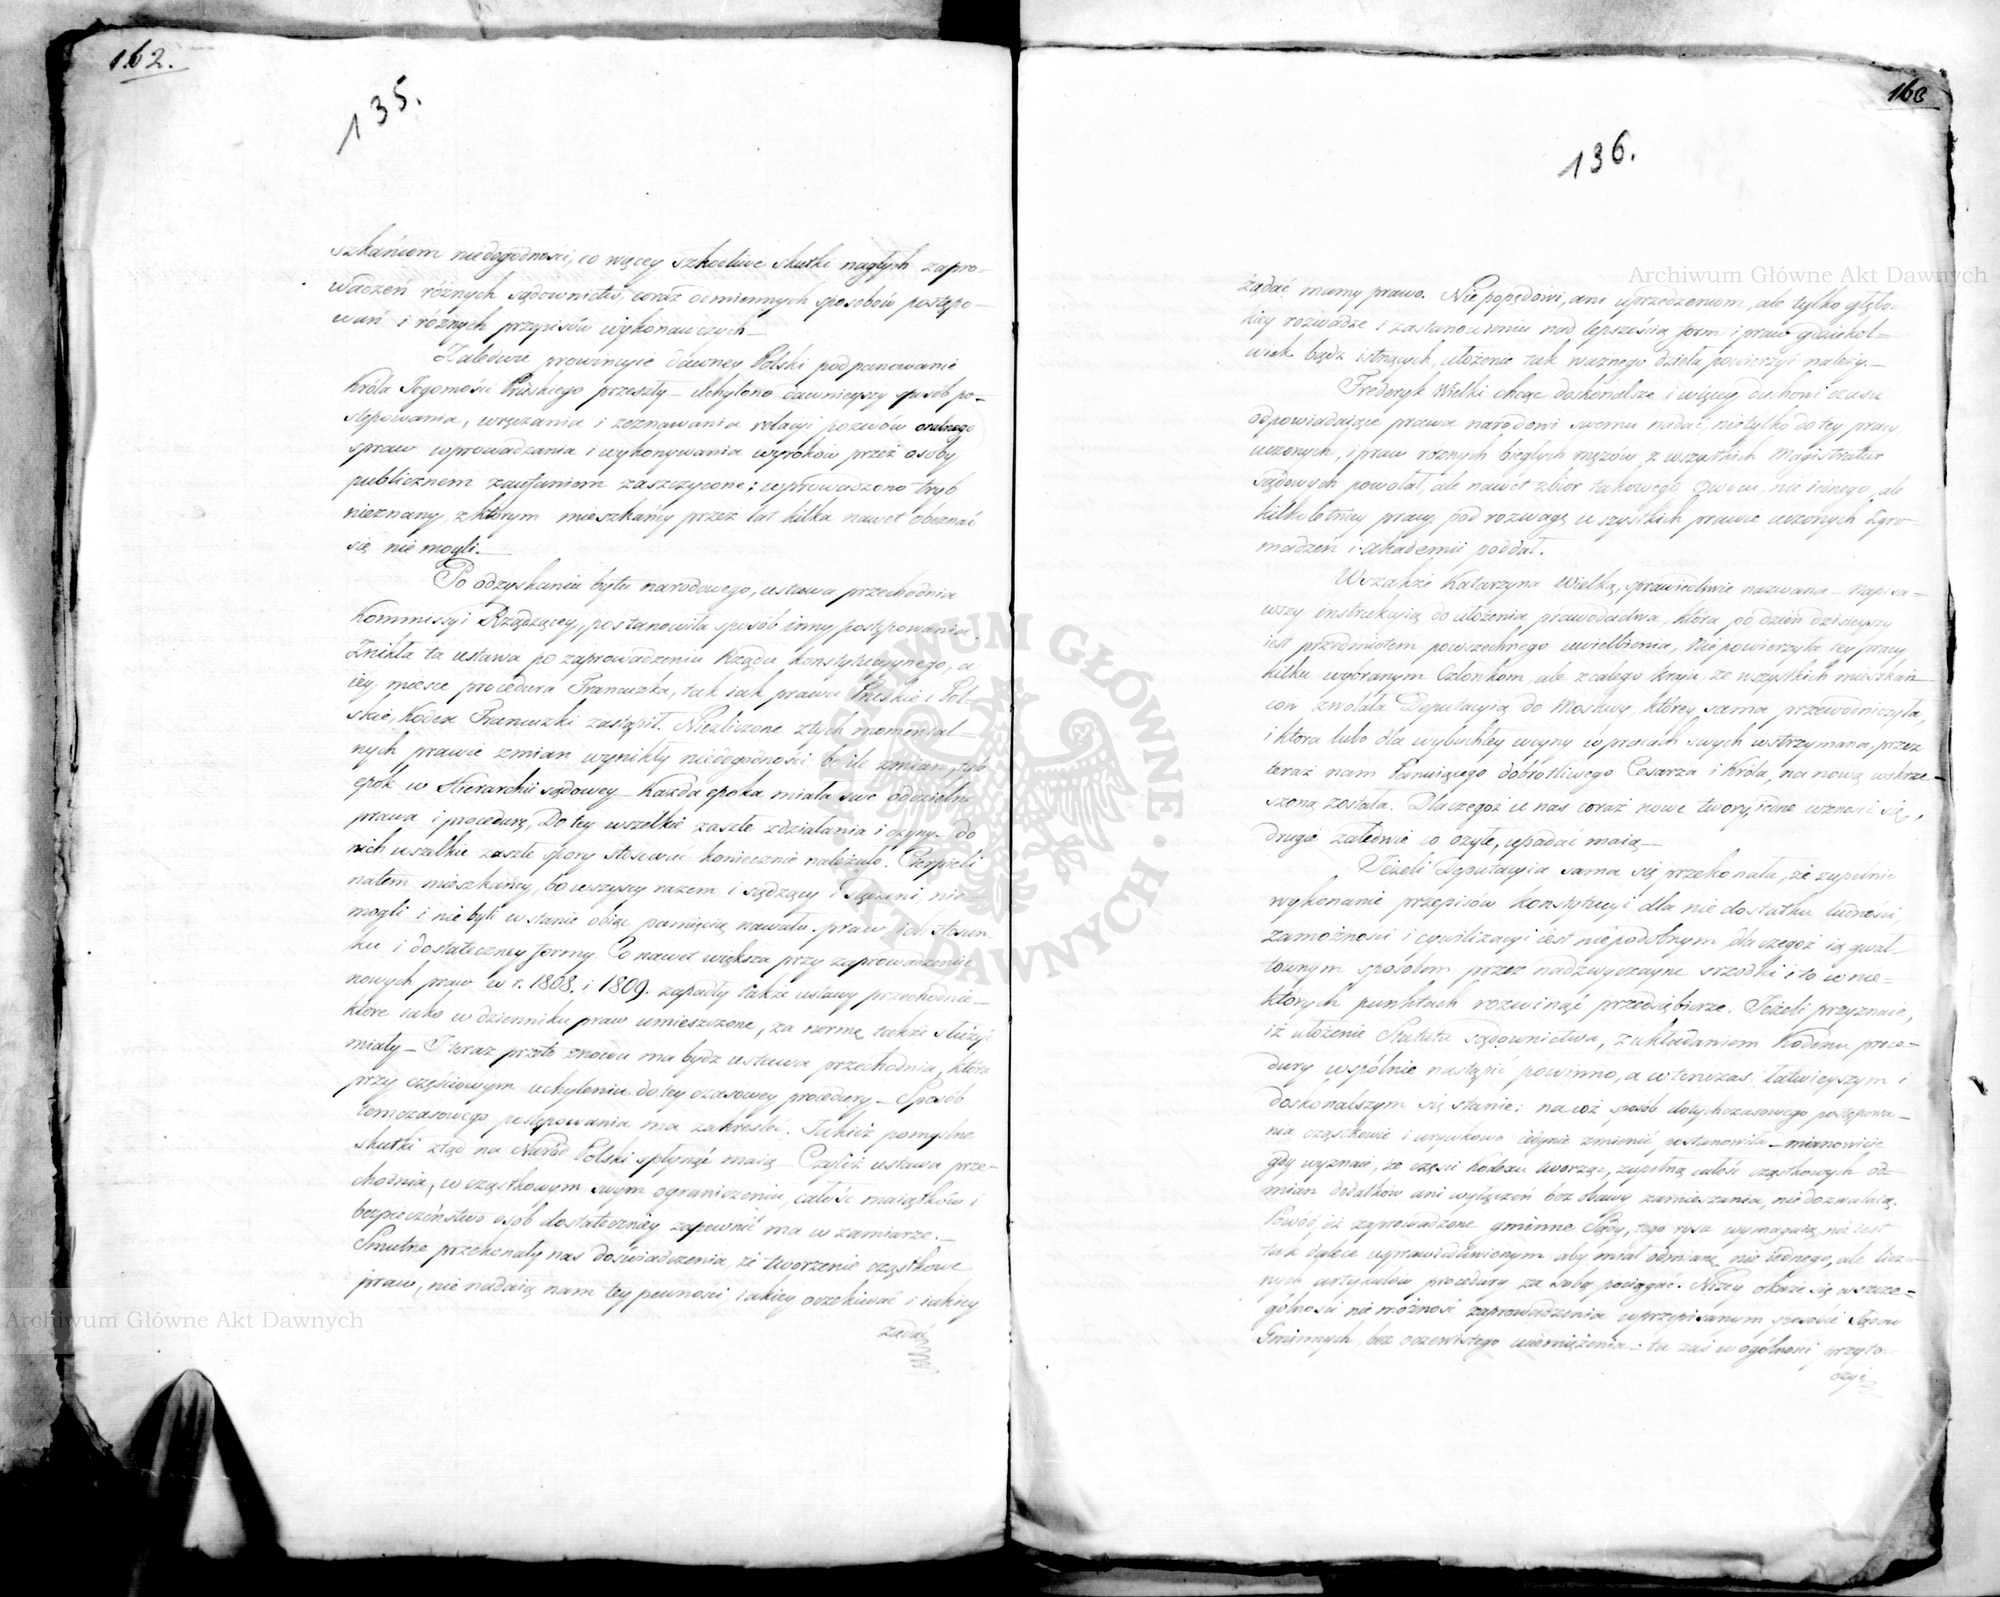 162.
135.
szkańcom niedogodności, co więcey szkodliwe skutki nagłych zapro-
wadzeń różnych sądownictw, coraz odmiennych sposobów postępo-
wań i różnych przepisów wykonawczych –
Zaledwie prowincye dawney Polski pod panowanie
Króla Jegomości Pruskiego przeszły – uchylono dawnieyszy sposób po-
stępowania, wręczania i zeznawania relacyi pozwów oralnego
spraw wprowadzania i wykonywania wyroków przez osoby
publicznem zaufaniem zaszczycone; wprowadzono tryb
nieznany, z którym mieszkańcy przez lat kilka nawet obeznać
się nie mogli. –
Po odzyskaniu bytu narodowego, ustawa przechodnia
Kommissyi Rządzącey, postanowiła sposób inny postępowania.
Znikła ta ustawa po zaprowadzeniu Rządu konstytucyjnego, a
iey mieysce procedura Francuzka, tak iak prawa Pruskie i Pol-
skie, Kodex Francuzki zastąpił. Niezliczone z tych momental-
nych prawie zmian wynikły niedogodności bo ile zmian, tyle
epok w Hierarchii sądowey – Każda epoka miała swe oddzielne
prawa i procedurę, Do tey wszelkie zaszłe zdziałania i czyny – do
nich wszelkie zaszłe spory stosować koniecznie należało. Cierpieli
zatem mieszkańcy, bo wszyscy razem i sądzący i sądzeni, nie
mogli i nie byli w stanie obiąć pamięcią nawału praw, ich stosun-
ku i dostateczney formy. Co nawet większa przy zaprowadzeniu
nowych praw w r. 1808. i 1809. zapadły także ustawy przechodnie –
które iako w dzienniku praw umieszczone, za normę także służyć
miały – I teraz przeto znowu ma bydź ustawa przechodnia, która
przy częściowym uchyleniu do tey czasowey procedury – Sposób
tymczasowego postępowania ma zakreślić. Jakież pomyślne
skutki ztąd na Naród Polski spłynąć maią – Czyliż ustawa prze-
chodnia, w cząstkowym swym ograniczeniu, całość maiątków i
bezpieczeństwo osób dostateczniey zapewnić ma w zamiarze. –
Smutne przekonały nas doświadczenia, że tworzenie cząstkowe
praw, nie nadaią nam tey pewności iakiey oczekiwać i iakiey
żądać
163
136.
żądać mamy prawo. Nie popędowi, ani uprzedzeniom, ale tylko głębo-
kiey rozwadze i zastanowieniu nad lepszością form i praw gdziekol-
wiek bądź istnących, ułożenie tak ważnego dzieła powierzyć należy. –
Frederyk Wielki chcąc doskonalsze i więcey duchowi czasu
odpowiadaiące prawa narodowi swemu nadać, nie tylko do tey pracy,
uczonych, i praw różnych biegłych mężów z wszystkich Magistratur
Sądowych powołał, ale nawet zbiór takowego owocu, nie iednego, ale
kilkoletniey pracy, pod rozwagę wszystkich prawie uczonych Zgro-
madzeń i akademii poddał.
Wszakże Katarzyna Wielką, sprawiedliwie nazwana – napisa-
wszy instrukcyią do ułożenia prawodactwa, która po dzień dzisieyszy
iest przedmiotem powszechnego uwielbienia, Nie powierzyła tey pracy
kilku wybranym Członkom, ale z całego kraiu, ze wszystkich mieszkań-
ców zwołała Deputacyią do Moskwy, którey sama przewodniczyła,
i która lubo dla wybuchłey woyny w pracach swych wstrzymana, przez
teraz nam Panuiącego dobrotliwego Cesarza i Króla, na nową wskrze-
szoną została. Dlaczegóż u nas coraz nowe twory, iedne wznosić się,
drugie zaledwie co ożyłe, upadać maią –
Jeżeli Deputacyia sama się przekonała, że zupełnie
wykonanie przepisów konstytucyi dla niedostatku ludności,
zamożności i cywilizacyi iest niepodobnym dla czegóż ią gwał-
townym sposobem przez nadzwyczayne srzodki i to w nie-
których punktach rozwinąć przedsiębierze. Jeżeli przyznaie,
iż ułożenie Statutu sądownictwa, z układaniem Kodexu proce-
dury wspólnie nastąpić powinno, a wtenczas łatwieyszym i
doskonalszym się stanie: na cóż sposób dotychczasowego postępowa-
nia cząstkowie i urywkowo iedynie zmienić postanowiła – mianowicie
gdy wyznaie, że części Kodexu tworząc, zupełną całość cząstkowych od-
mian dodatków ani wyłączeń bez obawy zamieszania, nie dozwalaią.
Powód, iż zaprowadzone gminne Sądy, tego rysu wymagaią, nie iest
tak dalece usprawiedliwionym, aby miał odmianę nie iednego, ale licz-
nych artykułów procedury za sobą pociągać. Niżey okaże się w szcze-
gólności niemożność zaprowadzenia w przepisanym sposobie Sądów
Gminnych, bez oczewistego uciemiężenia: tu zaś w ogólności przyto-
czyć
Archiwum Główne Akt Dawnych
Archiwum Główne Akt Dawnych
ARCHIWUM GŁÓWNE AKT DAWNYCH